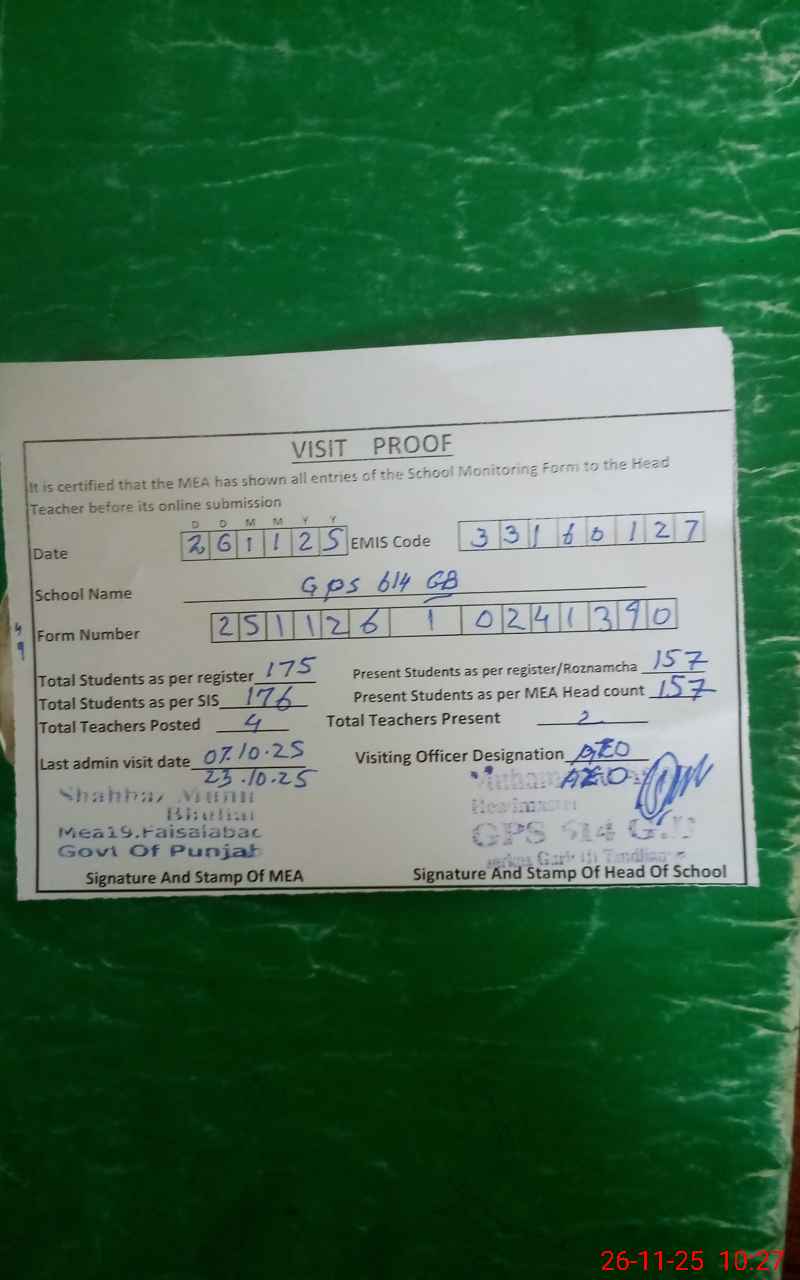 VISIT PROOF
It is certified that the MEA has shown all entries of the School Monitoring Form to the Head
Teacher before its online submission
D D M M Y Y
Date 261125 EMIS Code 33160127
School Name Gps 614 GB
Form Number 251126 1 0241390
49
Total Students as per register 175 Present Students as per register/Roznamcha 157
Total Students as per SIS 176 Present Students as per MEA Head count 157
Total Teachers Posted 4 Total Teachers Present 2
Last admin visit date 07.10.25 Visiting Officer Designation AEO
23.10.25 AEO
Shahbaz
Headmaster
Mea19.Faisalabad GPS 614 G.B
Govt Of Punjab
Signature And Stamp Of MEA Signature And Stamp Of Head Of School
26-11-25 10:27